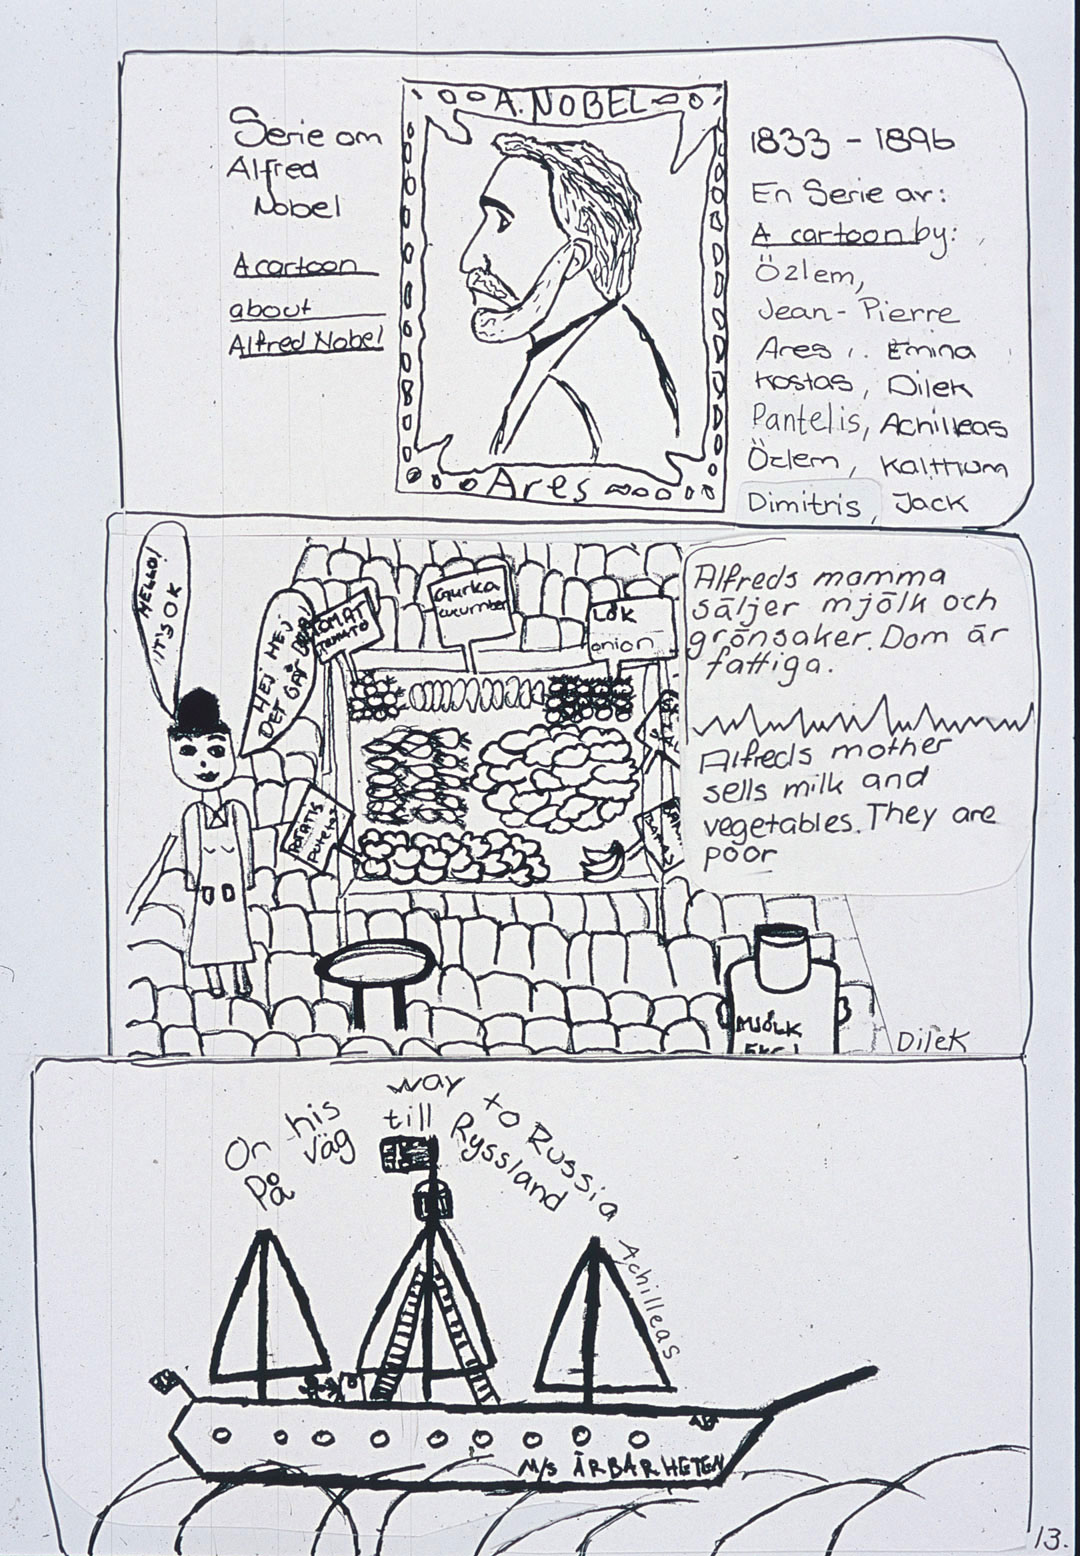 Serie om
Alfred
Nobel
A cartoon
about
Alfred Nobel
A. NOBEL
Ares
1833 - 1896
En Serie av:
A cartoon by:
Özlem,
Jean-Pierre
Ares, Emina
Kostas, Dilek
Pantelis, Achilleas
Özlem, Kalthum
Dimitris, Jack
HELLO!
IT'S OK
HEJ HEJ
DET GÅR BRA!
TOMAT
TOMATO
Gurka
cucumber
LÖK
onion
POTATIS
Alfreds mamma
säljer mjölk och
grönsaker. Dom är
fattiga.
Alfreds mother
sells milk and
vegetables. They are
poor
MJÖLK
Dilek
On his way to Russia
På väg till Ryssland
Achilleas
M/S ÄRBARHETEN
13.